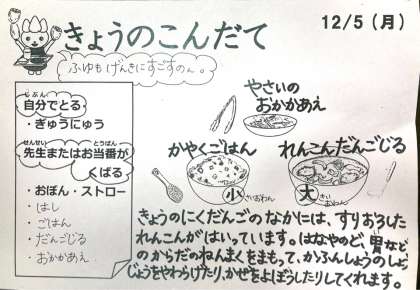 きょうのこんだて
12/5(月)
ふゆもげんきにすごすのん。
じぶん
自分でとる
・ぎゅうにゅう
せんせい とうばん
先生またはお当番が
くばる
・おぼん・ストロー
・はし
・ごはん
・だんごじる
・おかかあえ
やさいの
おかかあえ
かやくごはん
小
さいおわん
れんこんだんごじる
大
きいおわん
きょうのにくだんごのなかには、すりおろした
れんこんがはいっています。はなやのど、胃など
のからだのねんまくをまもって、かふんしょうのしょう
じょうをやわらげたり、かぜをよぼうしたりしてくれます。